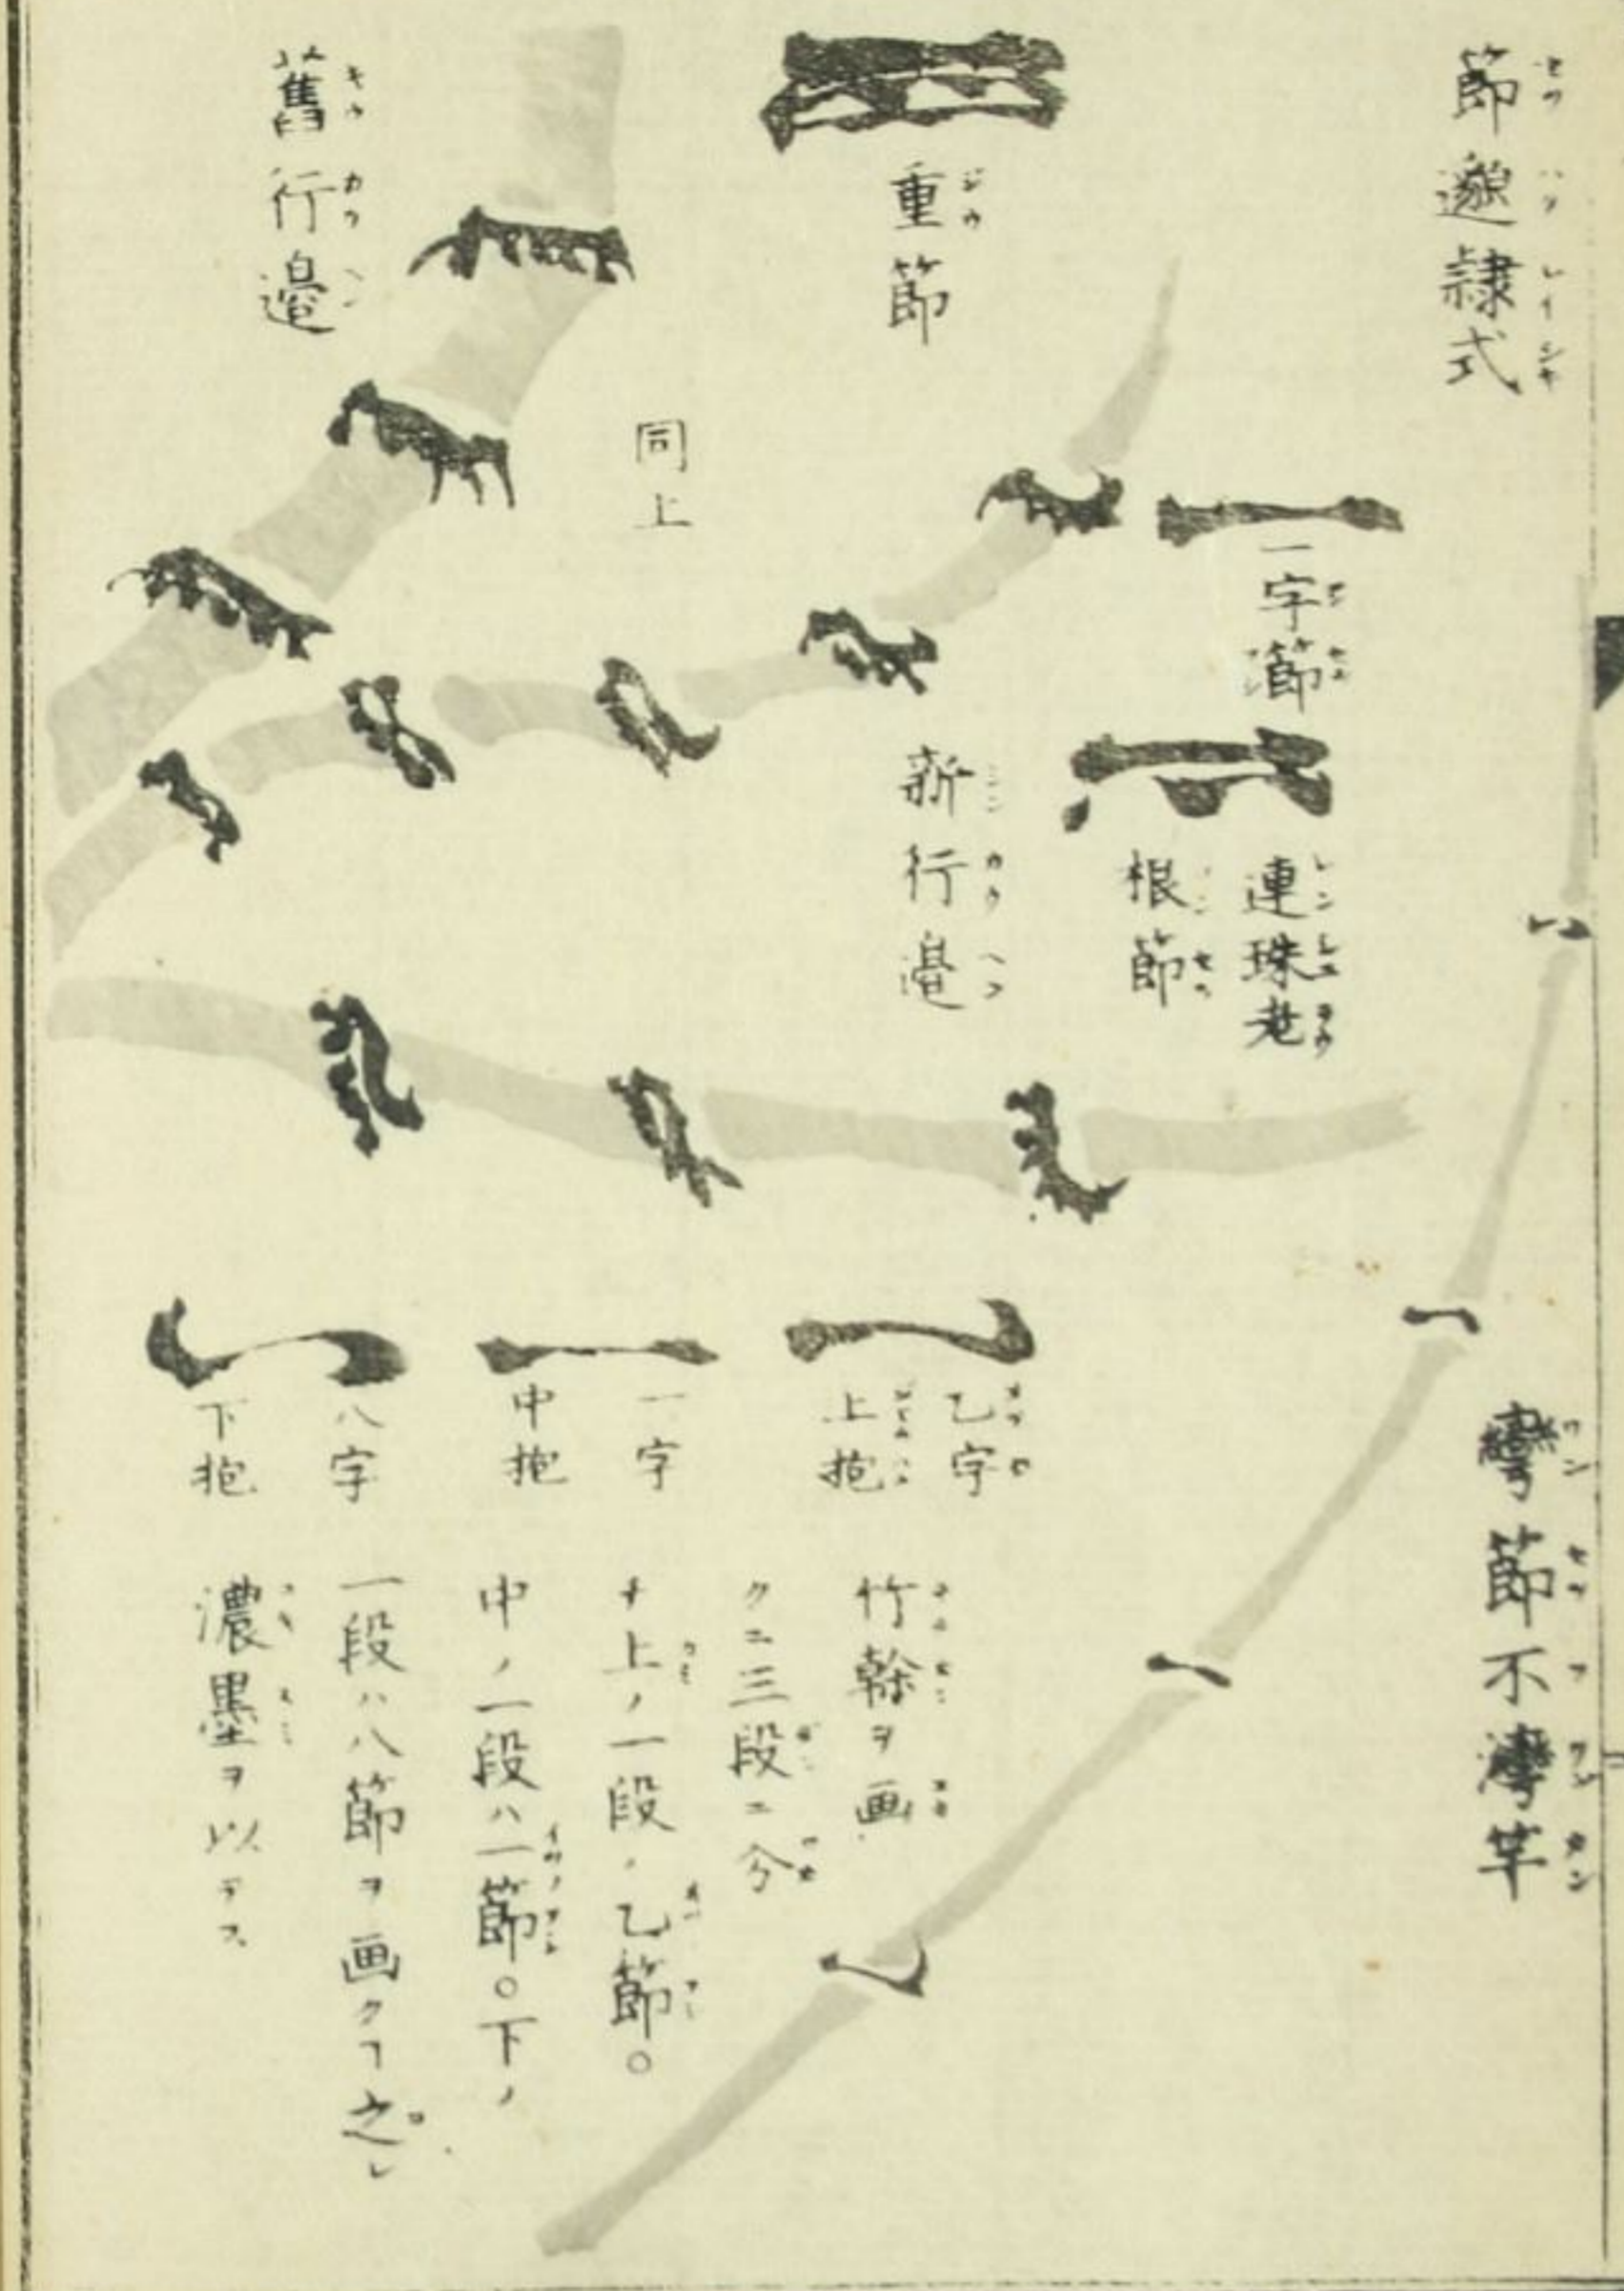 節邈隷式
重節
舊行邉
同上
一字節
連珠老
根節
新行邉
彎節不灣竿
乙字
上抱
一字
中抱
八字
下抱
竹幹ヲ画
クニ三段ニ分
チ上ノ一段ハ乙節○
中ノ一段ハ一節○下ノ
一段ハ八節ヲ画クヿ之
濃墨ヲ以テス